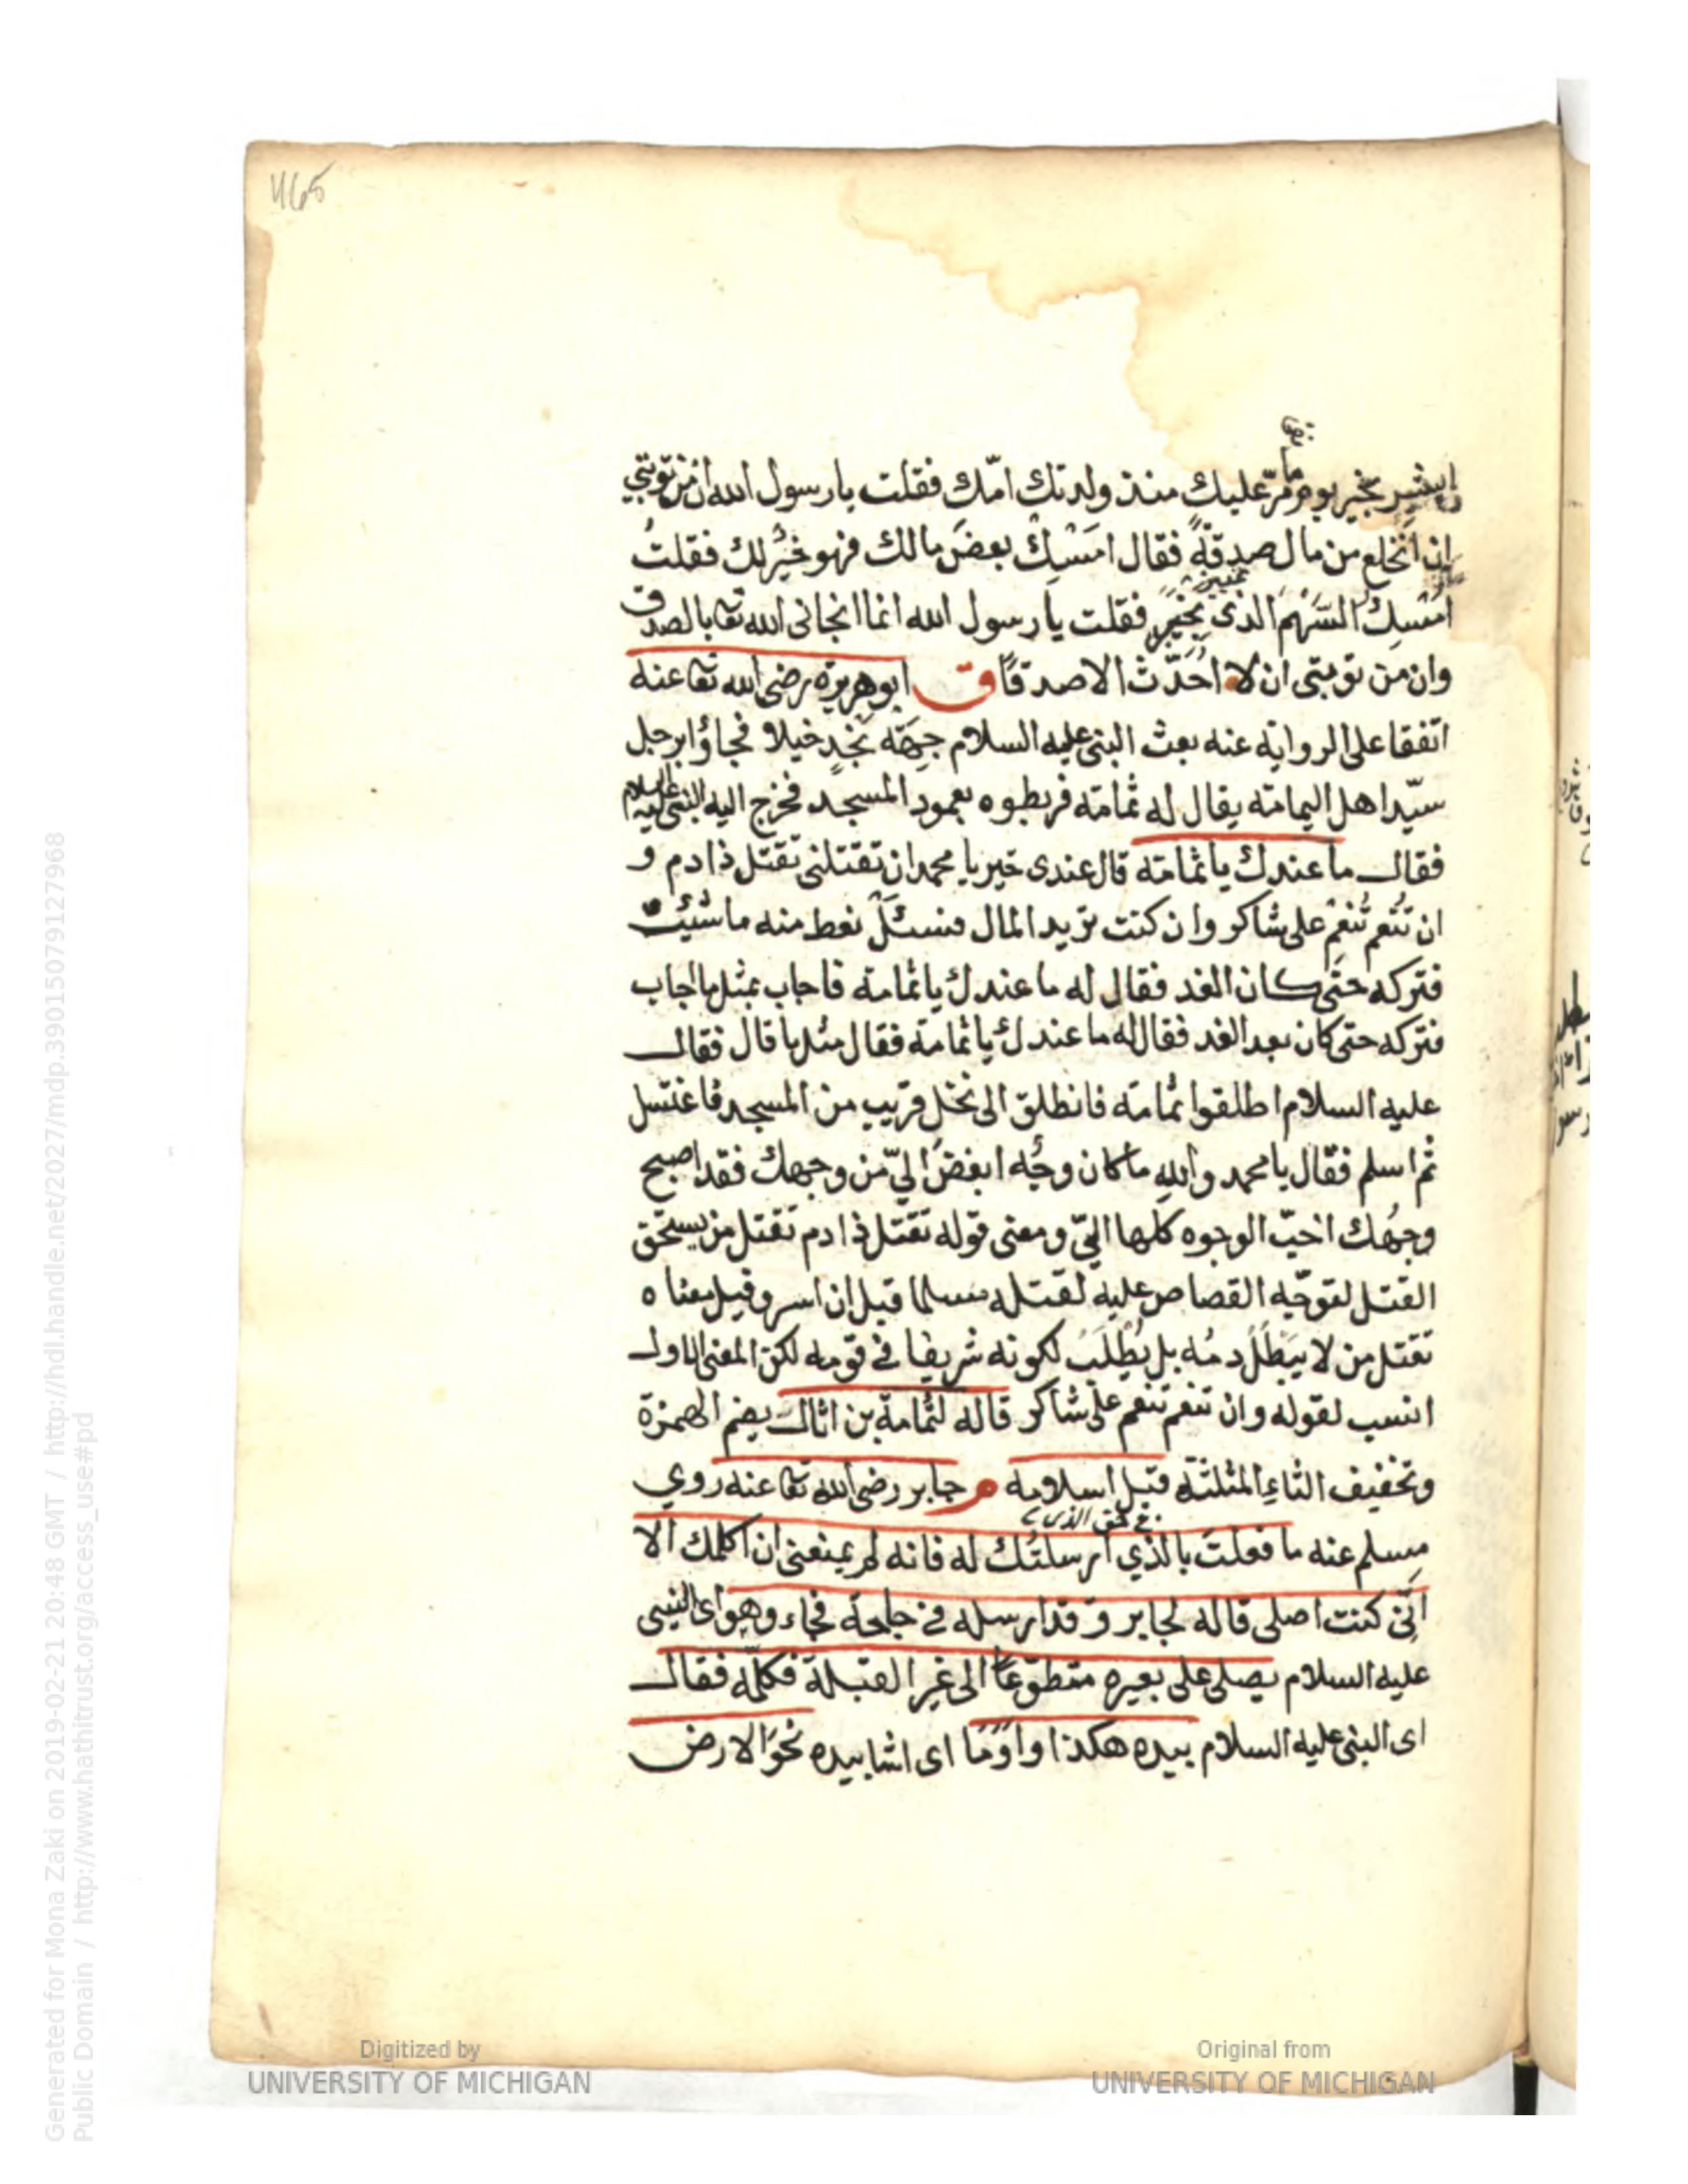 465
ابشر بخير يوم مرّ عليك منذ ولدتك امّك فقلت يا رسول الله ان من توبتي
ان انخلع من مال صدقةً فقال امسك بعض مالك فهو خيرلك فقلتُ
امسك السّهم الذى بخيبر فقلت يا رسول الله انما انجانى الله تعا بالصدق
وان من توبتى ان لا احدّث الا صدقًا ق ابو هريرة رضى الله تعا عنه
اتفقا على الرواية عنه بعث النبى عليه السلام جهة نجد خيلا فجاؤا برجل
سيّد اهل اليمامة يقال له ثمامة فربطوه بعمود المسجد فخرج اليه النبى عليه السلام
فقال ما عندك يا ثمامة قال عندى خير يا محمد ان تقتلنى تقتل ذا دم و
ان تنعم تنعم على شاكر وان كنت تريد المال فسئل نعط منه ما شئت
فتركه حتى كان الغد فقال له ما عندك يا ثمامة فاجاب بمثل ما اجاب
فتركه حتى كان بعد الغد فقال له ما عندك يا ثمامة فقال مثل ما قال فقال
عليه السلام اطلقوا ثمامة فانطلق الى نخل قريب من المسجد فاغتسل
ثم اسلم فقال يا محمد والله ما كان وجه ابغض اليّ من وجهك فقد اصبح
وجهك احبّ الوجوه كلها اليّ ومعنى قوله تقتل ذا دم تقتل من يستحق
القتل لتوجّه القصاص عليه لقتله مسلما قبل ان اسر وقيل معناه
تقتل من لا يبطل دمه بل يُطلب لكونه شريفا فى قومه لكن المعنى الاول
انسب لقوله وان تنعم تنعم على شاكر قاله لثمامة بن اثال بضم الهمزة
وتخفيف الثاء المثلثة قبل اسلامه م جابر رضى الله تعا عنه روي
فى حق الذى
مسلم عنه ما فعلت بالذي ارسلتك له فانه لم يمنعنى ان اكلمك الا
انّى كنت اصلى قاله لجابر وقد ارسله فى حاجة فجاء وهو اى النبى
عليه السلام يصلى على بعيره متطوّعًا الى غير القبلة فكلّمه فقال
اى النبى عليه السلام بيده هكذا واومَا اى اشا بيده نحو الارض
Digitized by
UNIVERSITY OF MICHIGAN
Original from
UNIVERSITY OF MICHIGAN
Generated for Mona Zaki on 2019-02-21 20:48 GMT / http://hdl.handle.net/2027/mdp.39015079127968
Public Domain / http://www.hathitrust.org/access_use#pd